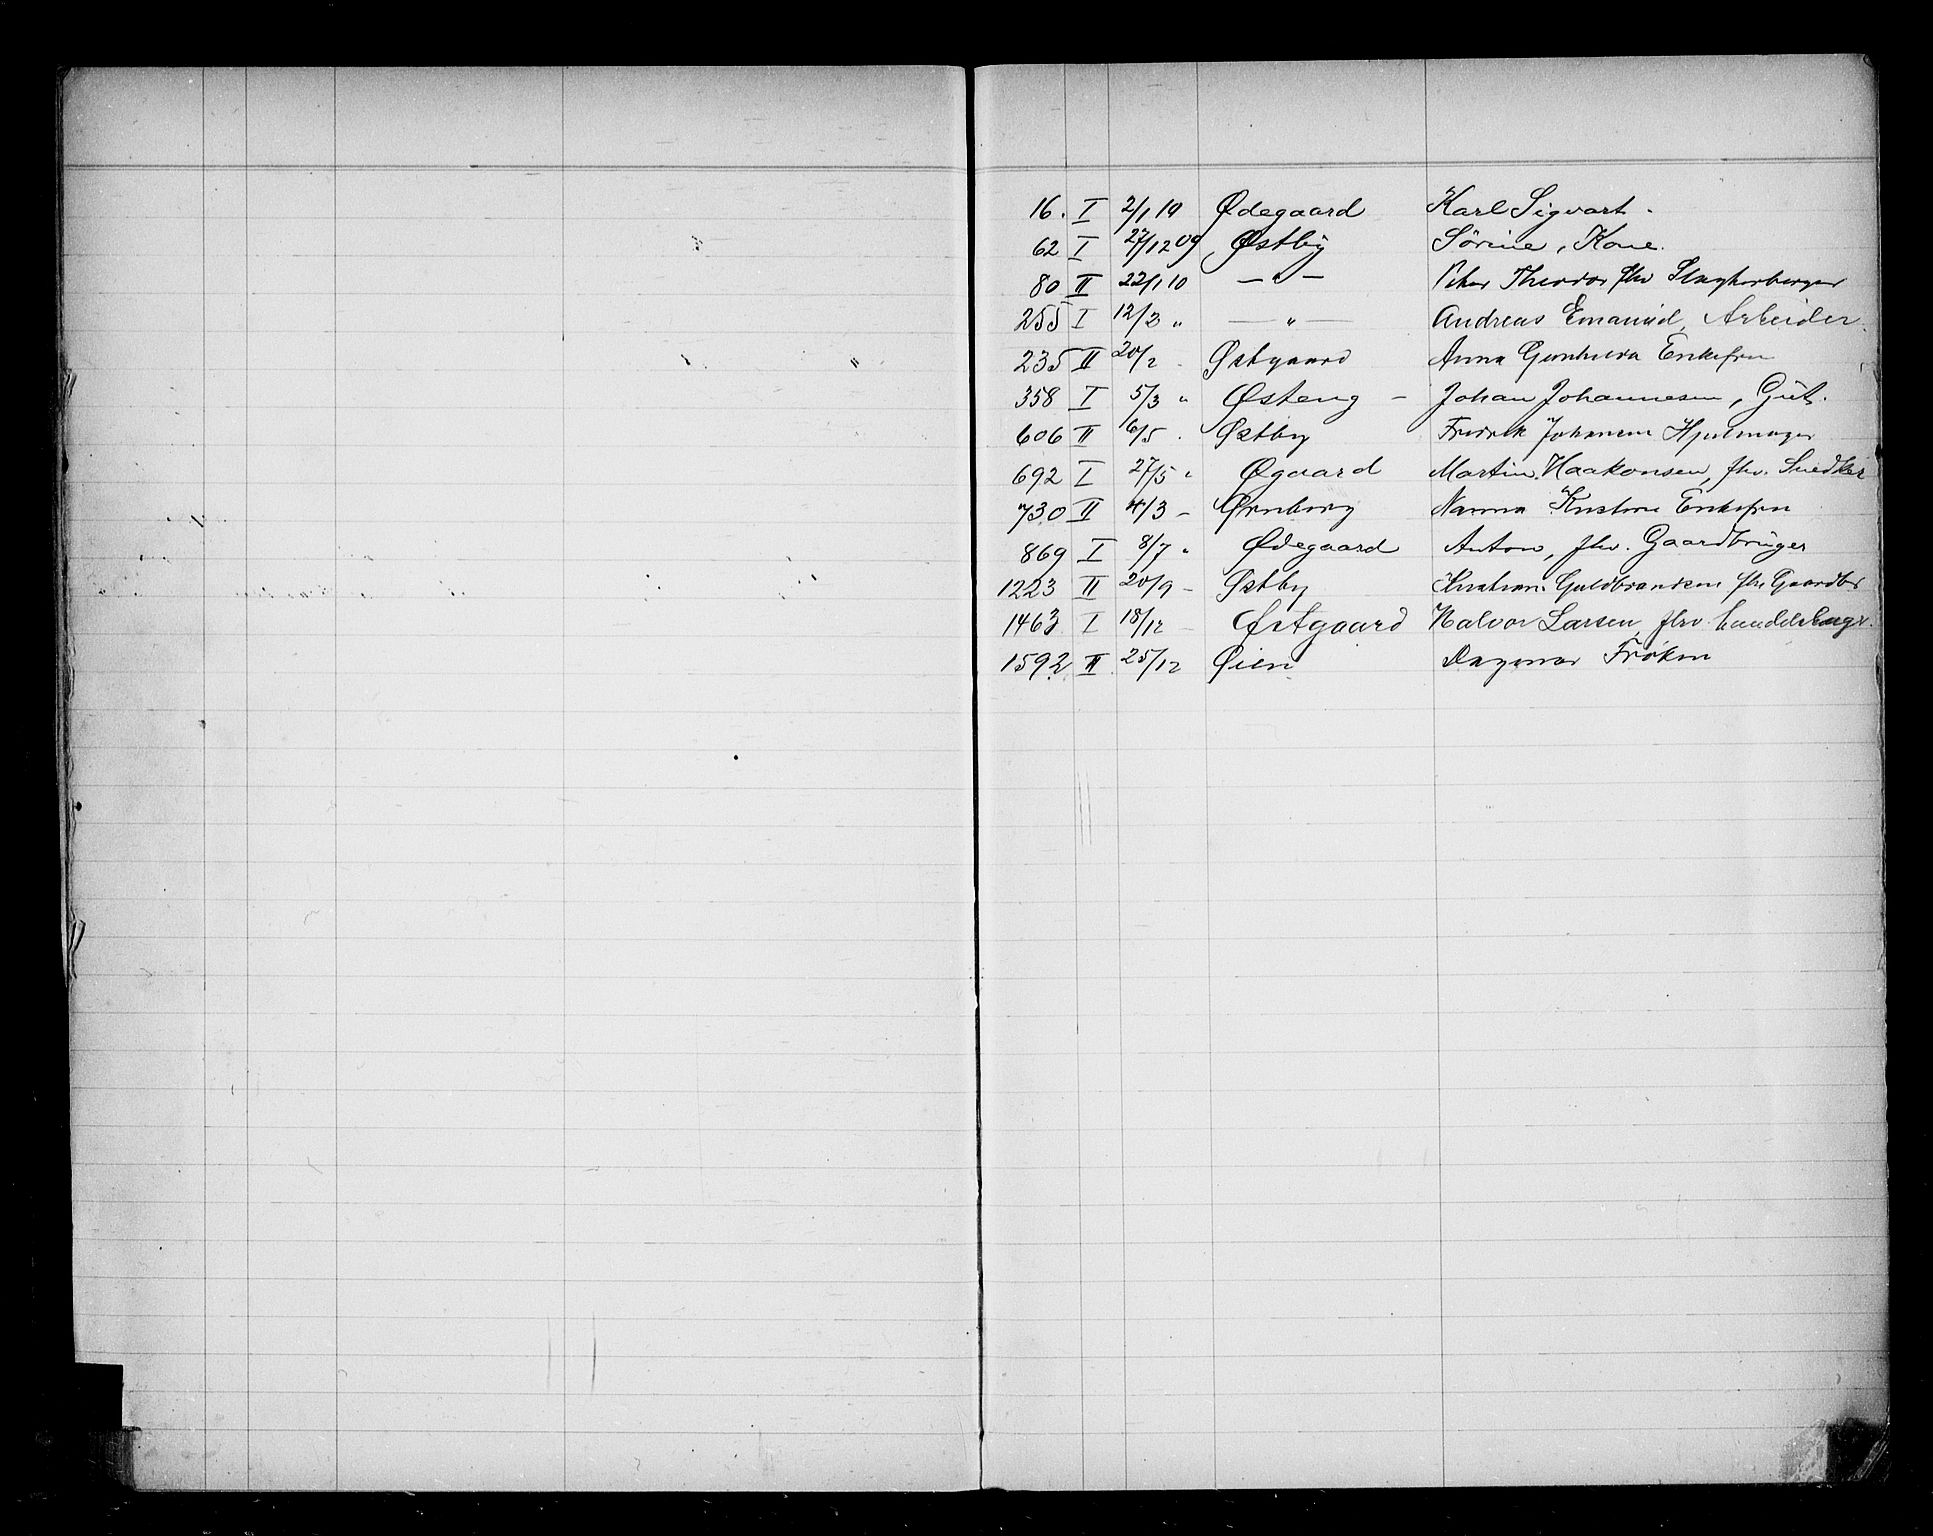 16. I 2/1 10 Ødegaard Karl Sigvart.
62 I 27/12 09 Østby Sørine, Kone.
80 II 22/1 10 — " — Peter Theodor fhv
255 I 12/2 " — " — Andreas Emanuel, Arbeider.
235 II 20/2 . Østgaard Anna Gunhilda Enkefru
358 I 5/3 " Østeng – Johan Johannesen, Gut.
606 II 6/5 . Østby Fredrik Johansen Hjulmager
692 I 27/5 " Øgaard Martin Haakonsen, fhv. Snedker
730 II 4/3 – Ørnberg Nanna Kristine Enkefru
869 I 8/7 " Ødegaard Anton, fhv. Gaardbruger
1223 II 20/9 – Østby Kristian Guldbrandsen fhv Gaardbr
1463 I 18/12 – Østgaard Halvor Larsen, fhv
1592 II 25/12 Øien Dagmar Frøken